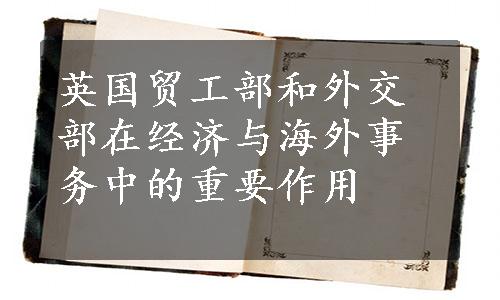 英国贸工部和外交
部在经济与海外事
务中的重要作用